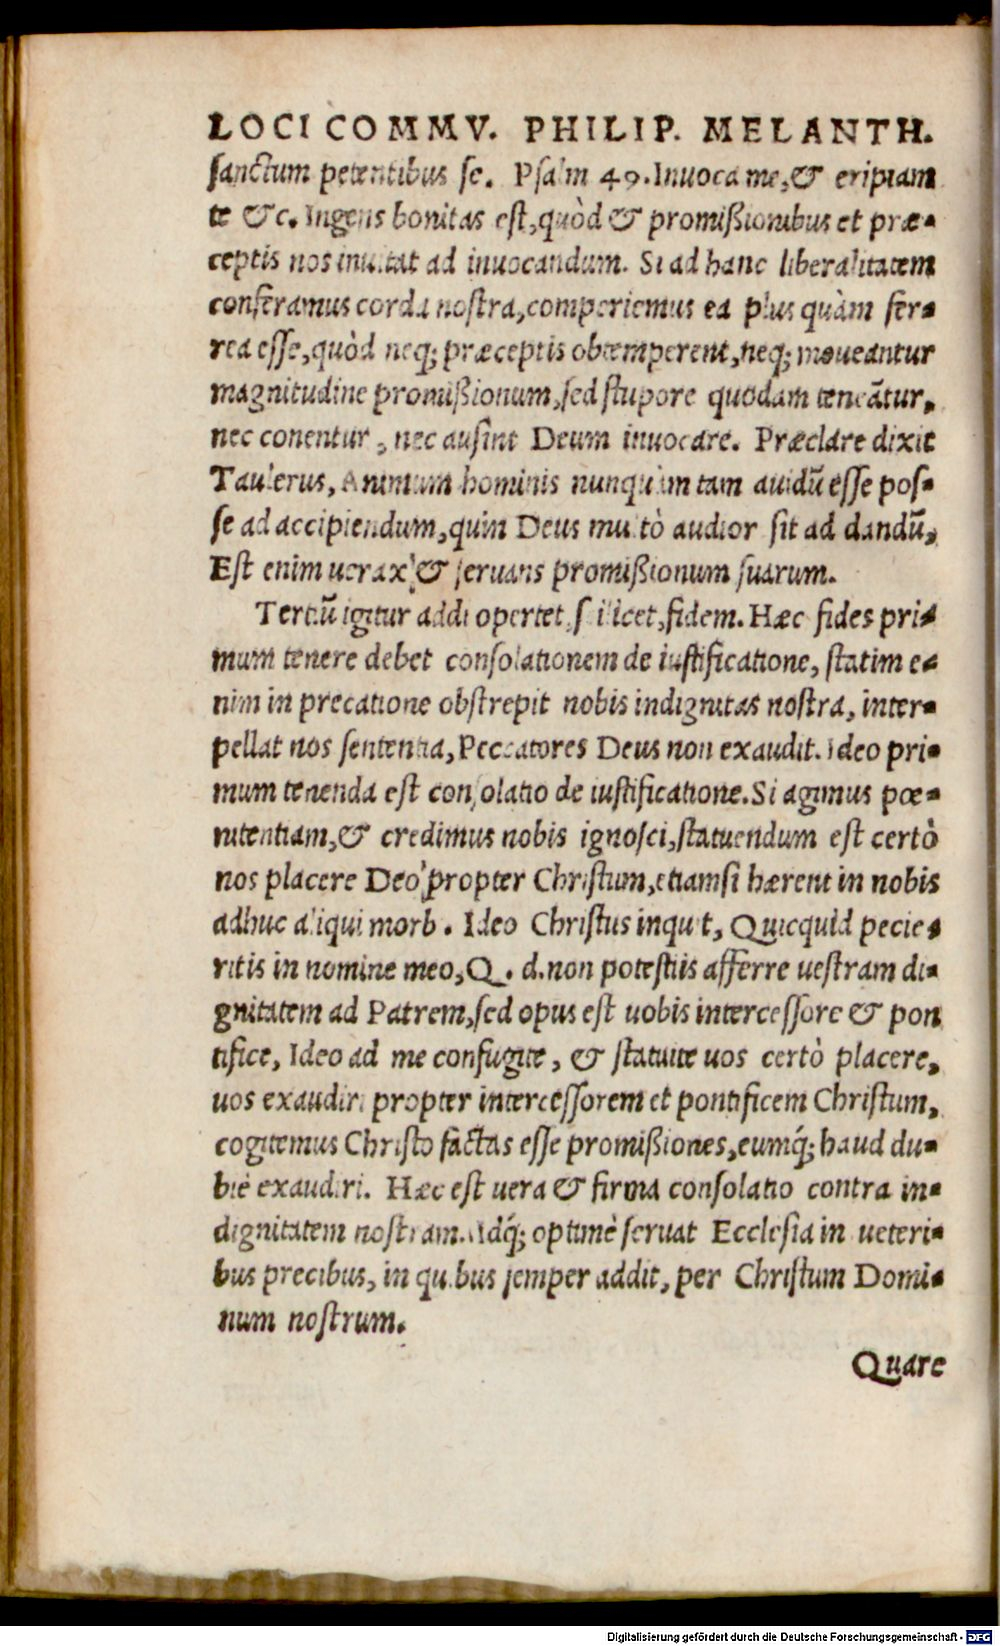 LOCI COMMV. PHILIP. MELANTH.
sanctum petentibus se. Psalm 49. Inuoca me, & eripiam
te &c. Ingens bonitas est, quòd & promißionibus et præ-
ceptis nos inuitat ad inuocandum. Si ad hanc liberalitatem
conferamus corda nostra, comperiemus ea plus quàm fer-
rea esse, quòd neq; præceptis obtemperent, neq; moueantur
magnitudine promißionum, sed stupore quodam teneãtur,
nec conentur, nec ausint Deum inuocare. Præclare dixit
Taulerus, Animum hominis nunquam tam auidũ esse pos-
se ad accipiendum, quin Deus multò audior sit ad dandũ,
Est enim uerax & seruans promißionum suarum.
Tertiũ igitur addi opertet scilicet, fidem. Hæc fides pri-
mum tenere debet consolationem de iustificatione, statim e-
nim in precatione obstrepit nobis indignitas nostra, inter-
pellat nos sententia, Peccatores Deus non exaudit. Ideo pri-
mum tenenda est consolatio de iustificatione. Si agimus pœ-
nitentiam, & credimus nobis ignosci, statuendum est certò
nos placere Deo propter Christum, etiamsi hærent in nobis
adhuc aliqui morbi. Ideo Christus inquit, Quicquid pecie-
ritis in nomine meo, Q. d. non potestiis afferre uestram di-
gnitatem ad Patrem, sed opus est uobis intercessore & pon
tifice, Ideo ad me confugite, & statuite uos certò placere,
uos exaudiri propter intercessorem et pontificem Christum,
cogitemus Christo factas esse promißiones, eumq́; haud du-
biè exaudiri. Hæc est uera & firma consolatio contra in-
dignitatem nostram. Idq́; optimè seruat Ecclesia in ueteri-
bus precibus, in quibus semper addit, per Christum Domi-
num nostrum.
Quare
Digitalisierung gefördert durch die Deutsche Forschungsgemeinschaft - DFG